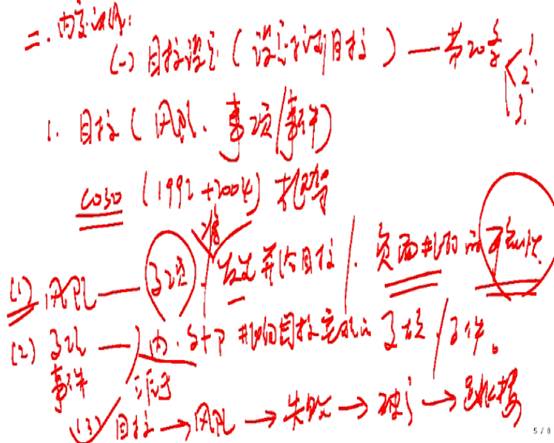 二、内容
(一) 目标设定 (设定控制目标) — 第20条 < 1. 2. 3.
1. 目标 (风险、事项/事件)
COSO (1992+2004) 框架
(1) 风险 — 事项 / 发生并给目标 / 负面影响的可能性
(2) 事项 — 内、外部 影响目标实现的 事故/事件。
事件 源于
(3) 目标 → 风险 → 失败 → 破产 →
5 / 8